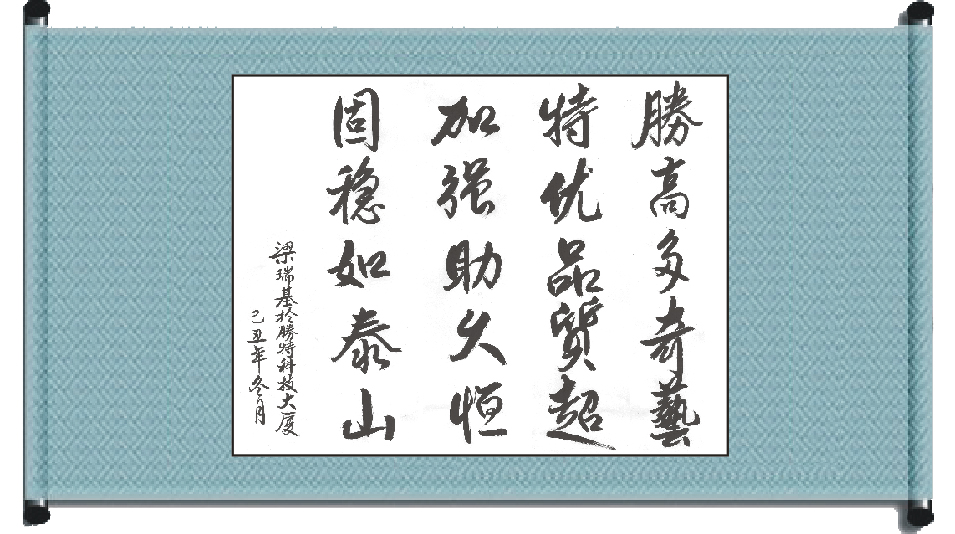 勝高多奇藝
特优品質超
加强助久恒
固稳如泰山
梁瑞基於勝特科技大厦
己丑年冬月